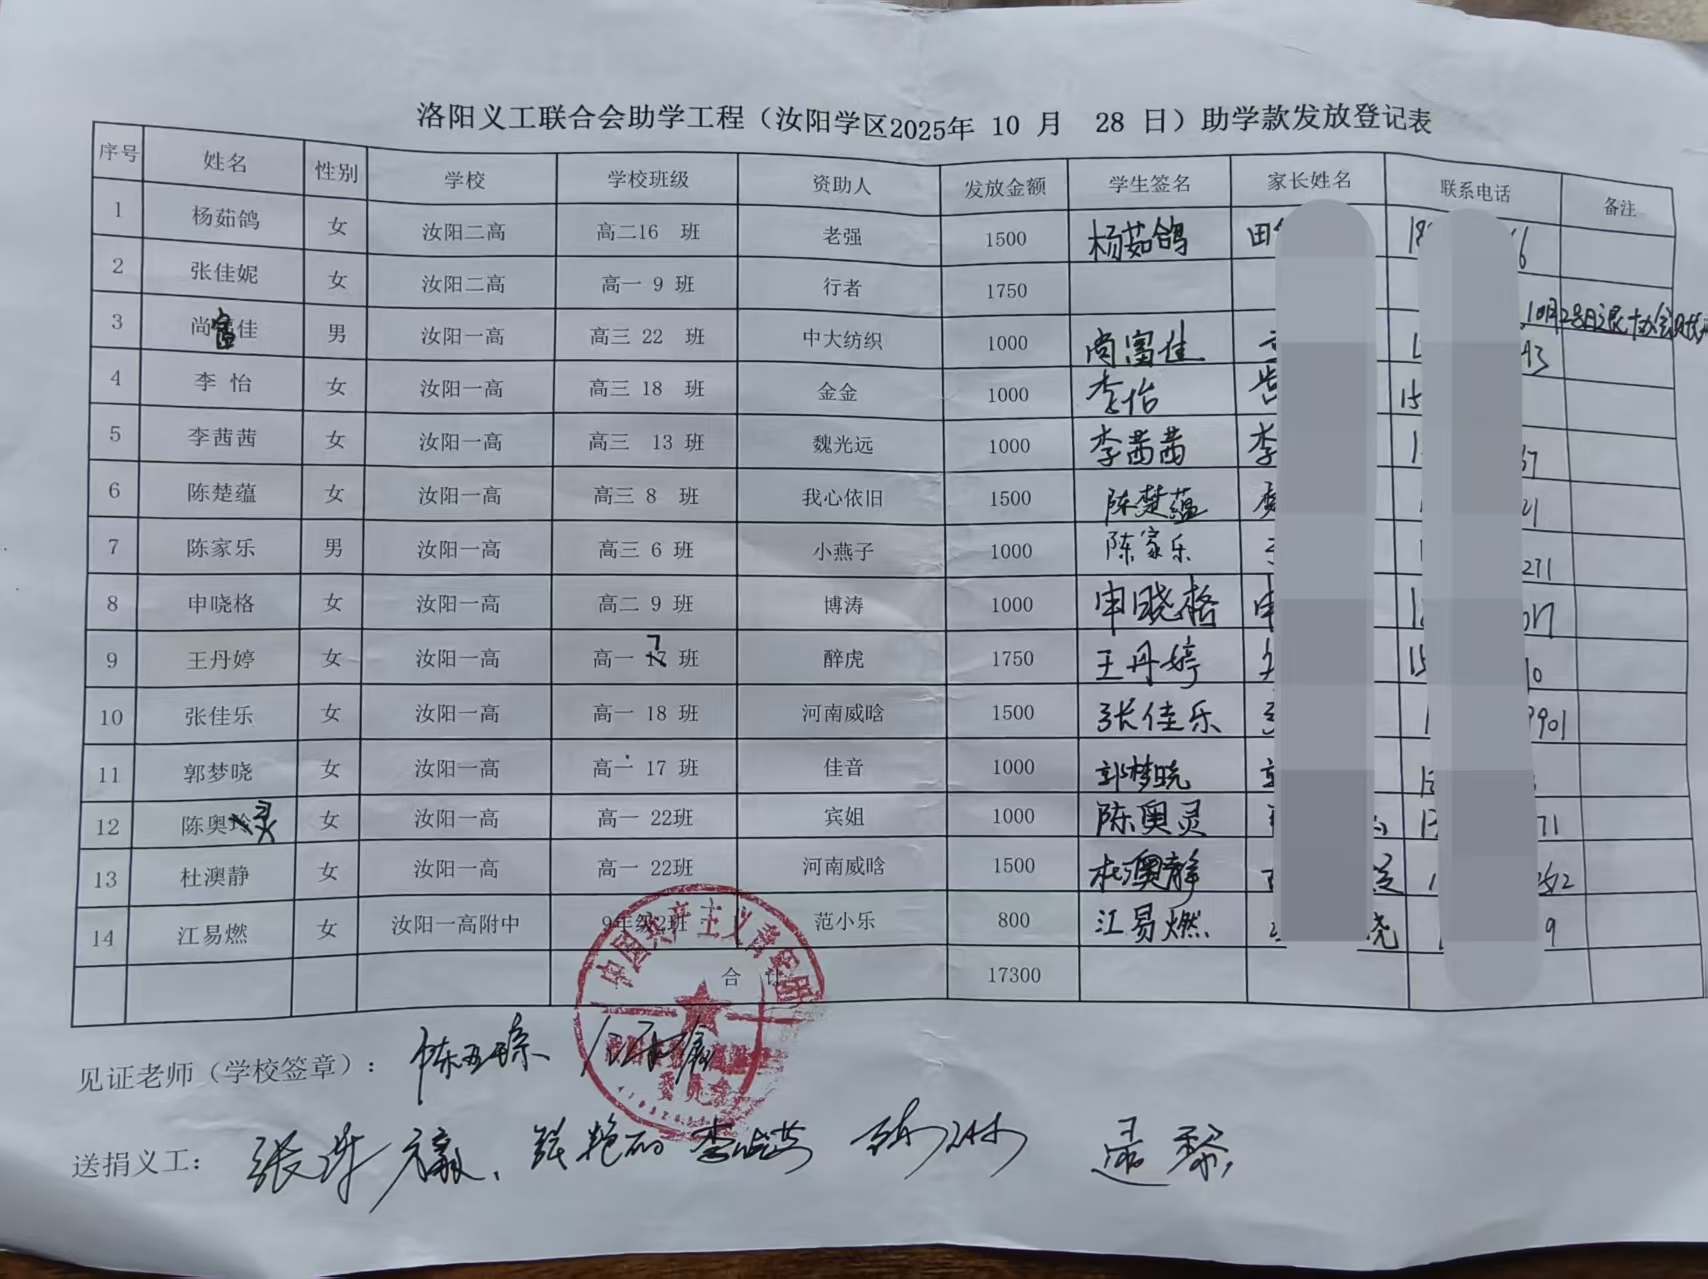 洛阳义工联合会助学工程（汝阳学区2025年 10 月 28 日）助学款发放登记表
序号 姓名 性别 学校 学校班级 资助人 发放金额 学生签名 家长姓名 联系电话 备注
1 杨茹鸽 女 汝阳二高 高二16 班 老强 1500 杨茹鸽 田
2 张佳妮 女 汝阳二高 高一 9 班 行者 1750
3 尚富佳 男 汝阳一高 高三 22 班 中大纺织 1000 尚富佳
4 李 怡 女 汝阳一高 高三 18 班 金金 1000 李怡 15
5 李茜茜 女 汝阳一高 高三 13 班 魏光远 1000 李茜茜 李 1 37
6 陈楚蕴 女 汝阳一高 高三 8 班 我心依旧 1500 陈楚蕴 21
7 陈家乐 男 汝阳一高 高三 6 班 小燕子 1000 陈家乐 271
8 申晓格 女 汝阳一高 高二 9 班 博涛 1000 申晓格 申 017
9 王丹婷 女 汝阳一高 高一 7 班 醉虎 1750 王丹婷 15 0
10 张佳乐 女 汝阳一高 高一 18 班 河南威晗 1500 张佳乐 1 9901
11 郭梦晓 女 汝阳一高 高一 17 班 佳音 1000 郭梦晓
12 陈奥灵 女 汝阳一高 高一 22班 宾姐 1000 陈奥灵 71
13 杜澳静 女 汝阳一高 高一 22班 河南威晗 1500 杜澳静 1 252
14 江易燃 女 汝阳一高附中 9年级2班 范小乐 800 江易燃 晓 9
合 计 17300
中国共产主义青年团
委员会
见证老师（学校签章）：
送捐义工：